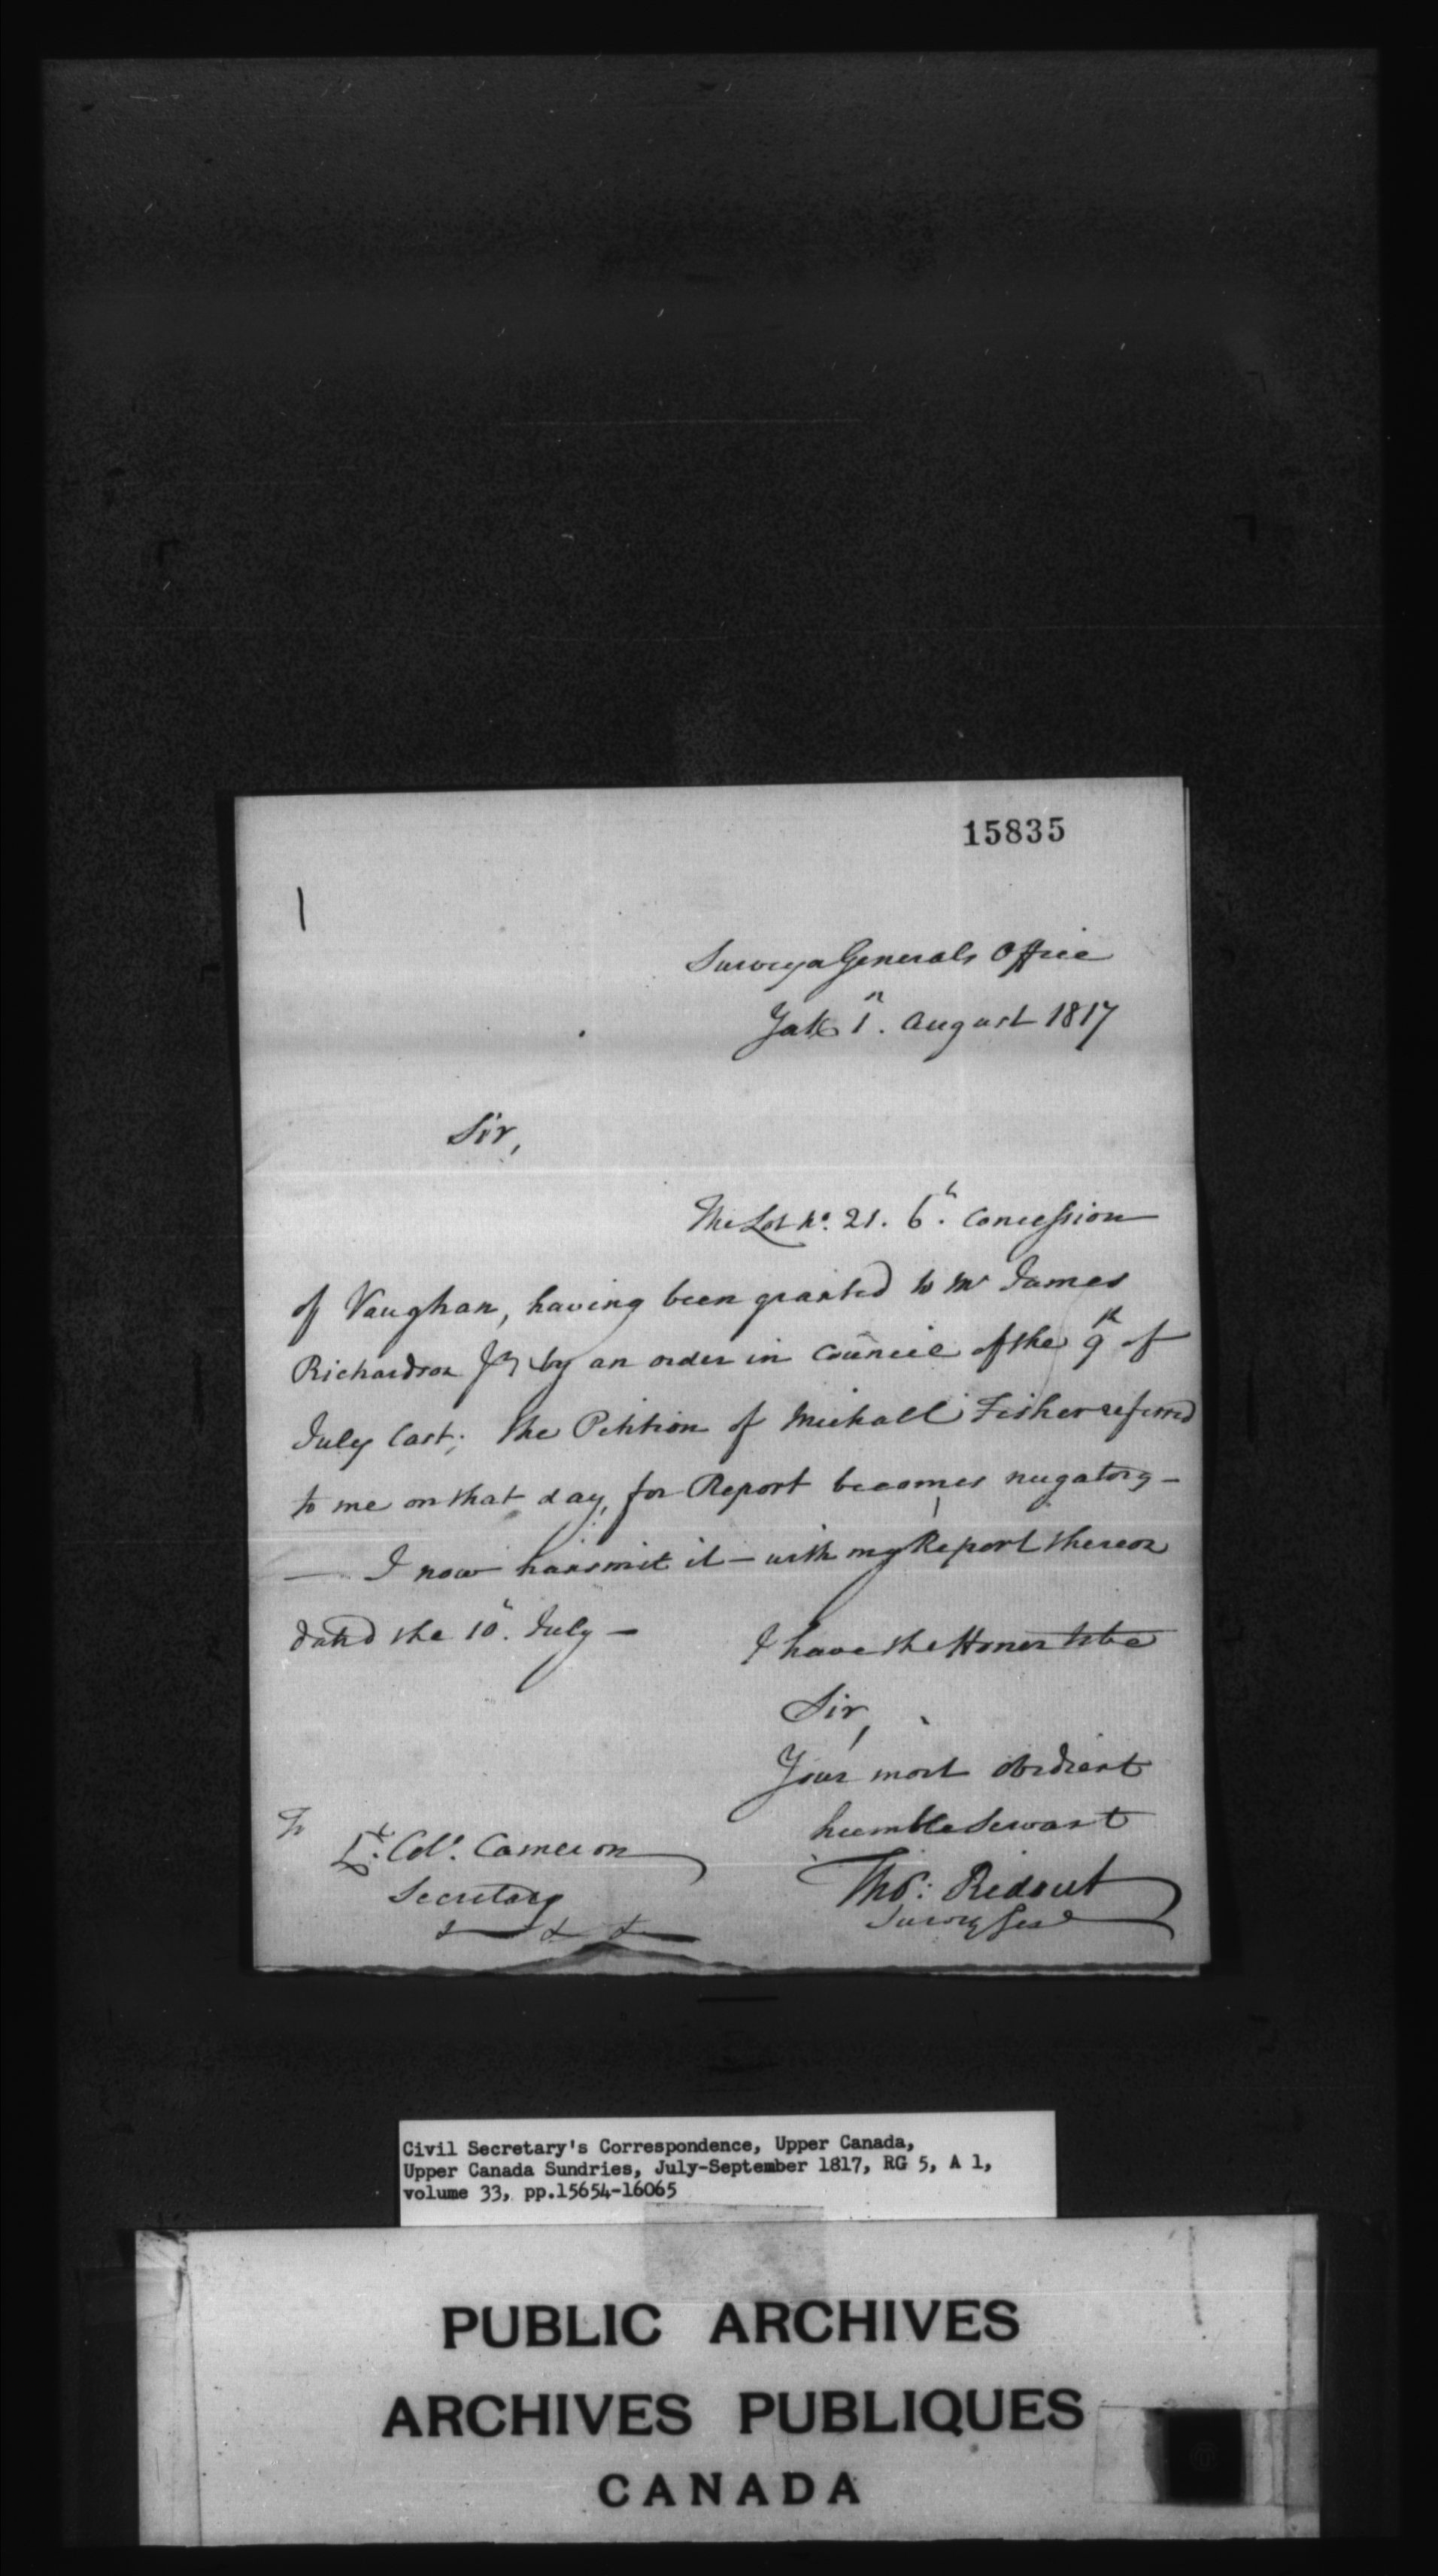 15835
Surveyor Generals Office
York 1st. August 1817
Sir,
The Lot No. 21. 6th. Concession
of Vaughan, having been granted to Mr James
Richardson Jr by an order in Council of the 9th of
July last; The Petition of Michall Fisher referred
to me on that day, for Report becomes nugatory—
— I now transmit it — with my Report thereon
dated the 10th. July —
I have the Honor to be
Sir,
Your most obedient
humble Servant
Thos: Ridout
Survey Genl
To
Lt. Col. Cameron
Secretary
& & &
Civil Secretary's Correspondence, Upper Canada,
Upper Canada Sundries, July-September 1817, RG 5, A 1,
volume 33, pp.15654-16065
PUBLIC ARCHIVES
ARCHIVES PUBLIQUES
CANADA